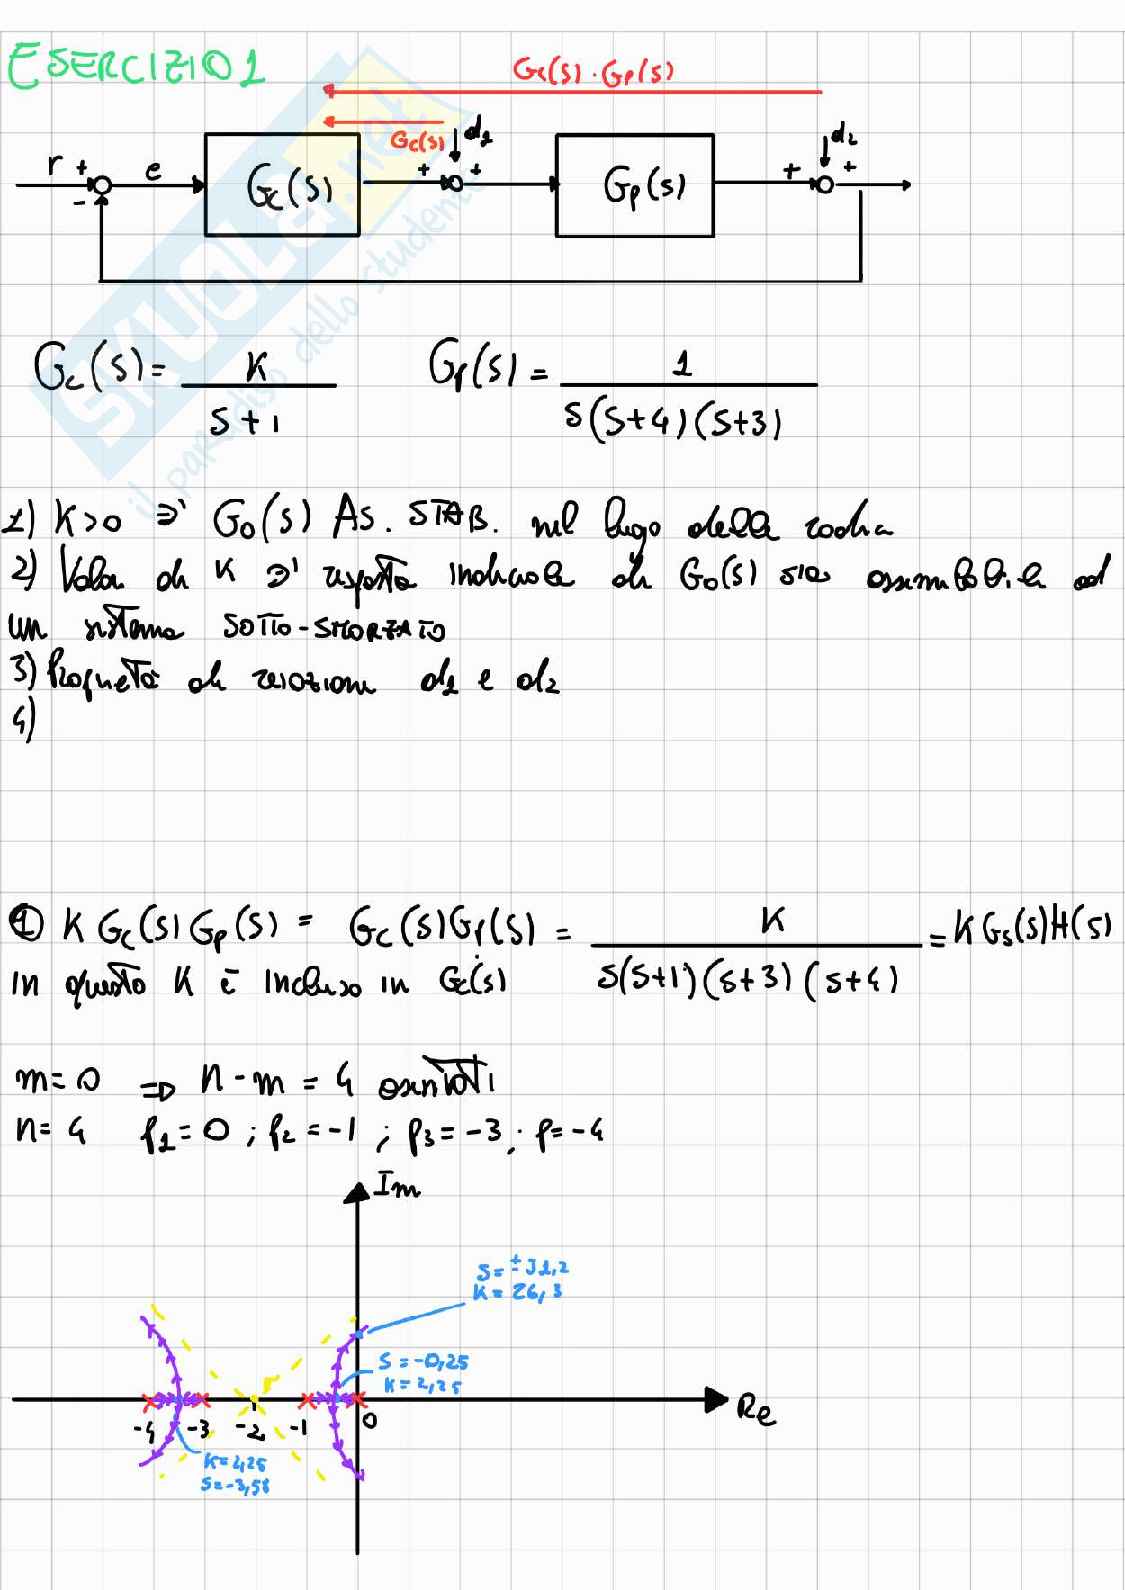 ESERCIZIO 1
Gc(s) · Gp(s)
Gc(s) d1 d2
r + e Gc(s) + + Gp(s) + +
-
SKUOLA.net
il paradiso dello studente
Gc(s) = K / s+1 Gp(s) = 1 / s(s+4)(s+3)
1) K>0 ∋' G0(s) As. STAB. nel luogo delle radici
2) Valori di K ∋' risposta indiciale di G0(s) sia assimilabile ad
un sistema SOTTO-SMORZATO
3) Proprietà di reiezione d1 e d2
4)
① K Gc(s) Gp(s) = Gc(s)Gp(s) = K / s(s+1)(s+3)(s+4) = K Gs(s)H(s)
in questo K è incluso in Gc(s)
m=0 => n-m = 4 asintoti
n=4 p1=0 ; p2=-1 ; p3=-3 ; p=-4
Im
s=±J1,2
K=26,3
s=-0,25
K=2,25
-4 -3 -2 -1 0 Re
K=4,25
s=-3,58